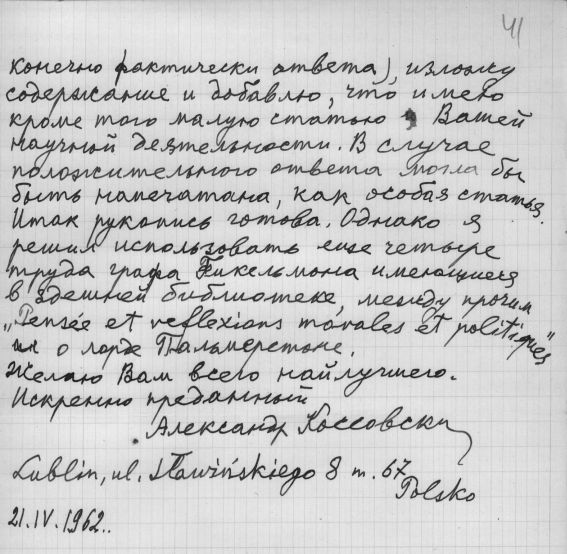 41
конечно фактически ответа), изложу
содержание и добавлю, что имею
кроме того малую статью о Вашей
научной деятельности. В случае
положительного ответа могла бы
быть напечатана, как особая статья.
Итак рукопись готова. Однако я
решил использовать еще четыре
труда графа Фикельмона имеющиеся
в здешней библиотеке, между прочим
„Pensée et reflexions morales et politiques"
и о лорде Пальмерстоне.
Желаю Вам всего найлучшего.
Искренно преданный
Александр Коссовски
Lublin, ul. Sławińskiego 8 m. 67
Polsko
21.IV.1962..